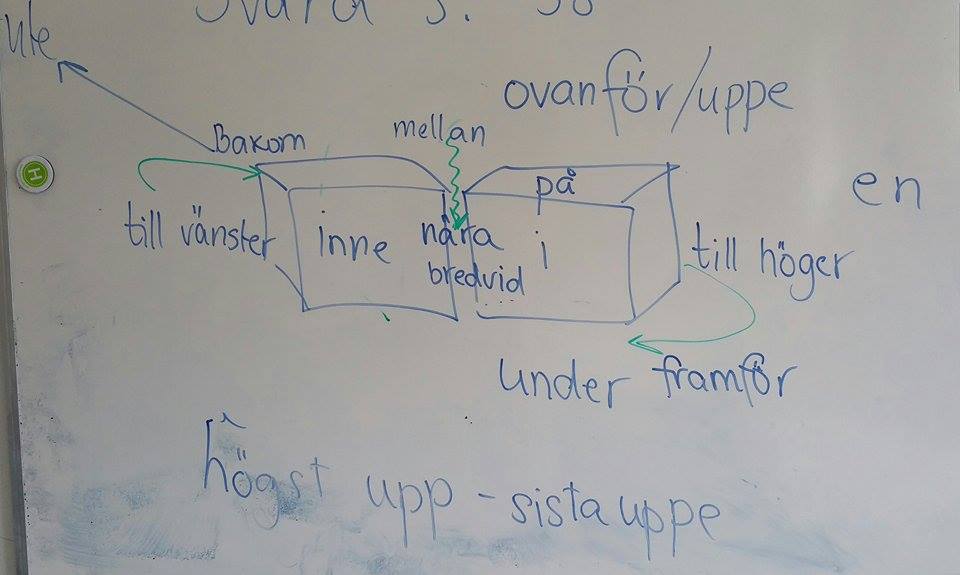 Svara s. 38
ute
ovanför/uppe
Bakom
mellan
på
en
till vänster
inne
nära
bredvid
i
till höger
under framför
högst upp - sista uppe
H